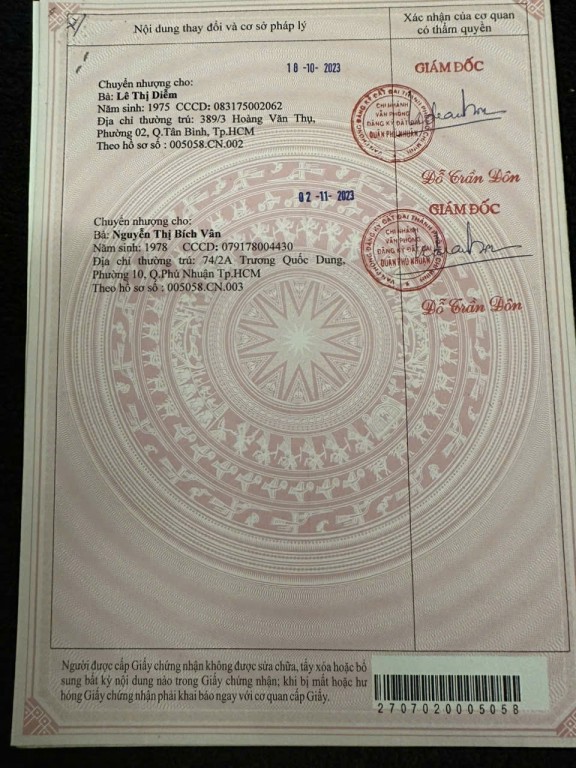 Nội dung thay đổi và cơ sở pháp lý
Xác nhận của cơ quan
có thẩm quyền
18 -10- 2023
GIÁM ĐỐC
Chuyển nhượng cho:
Bà: Lê Thị Diễm
Năm sinh: 1975 CCCD: 083175002062
Địa chỉ thường trú: 389/3 Hoàng Văn Thụ,
Phường 02, Q.Tân Bình, Tp.HCM
Theo hồ sơ số : 005058.CN.002
CHI NHÁNH
VĂN PHÒNG
ĐĂNG KÝ ĐẤT ĐAI
QUẬN PHÚ NHUẬN
Đỗ Trần Đôn
02 -11- 2023
GIÁM ĐỐC
Chuyển nhượng cho:
Bà: Nguyễn Thị Bích Vân
Năm sinh: 1978 CCCD: 079178004430
Địa chỉ thường trú: 74/2A Trương Quốc Dung,
Phường 10, Q.Phú Nhuận Tp.HCM
Theo hồ sơ số : 005058.CN.003
CHI NHÁNH
VĂN PHÒNG
ĐĂNG KÝ ĐẤT ĐAI
QUẬN PHÚ NHUẬN
Đỗ Trần Đôn
Người được cấp Giấy chứng nhận không được sửa chữa, tẩy xóa hoặc bổ
sung bất kỳ nội dung nào trong Giấy chứng nhận; khi bị mất hoặc hư
hỏng Giấy chứng nhận phải khai báo ngay với cơ quan cấp Giấy.
2707020005058